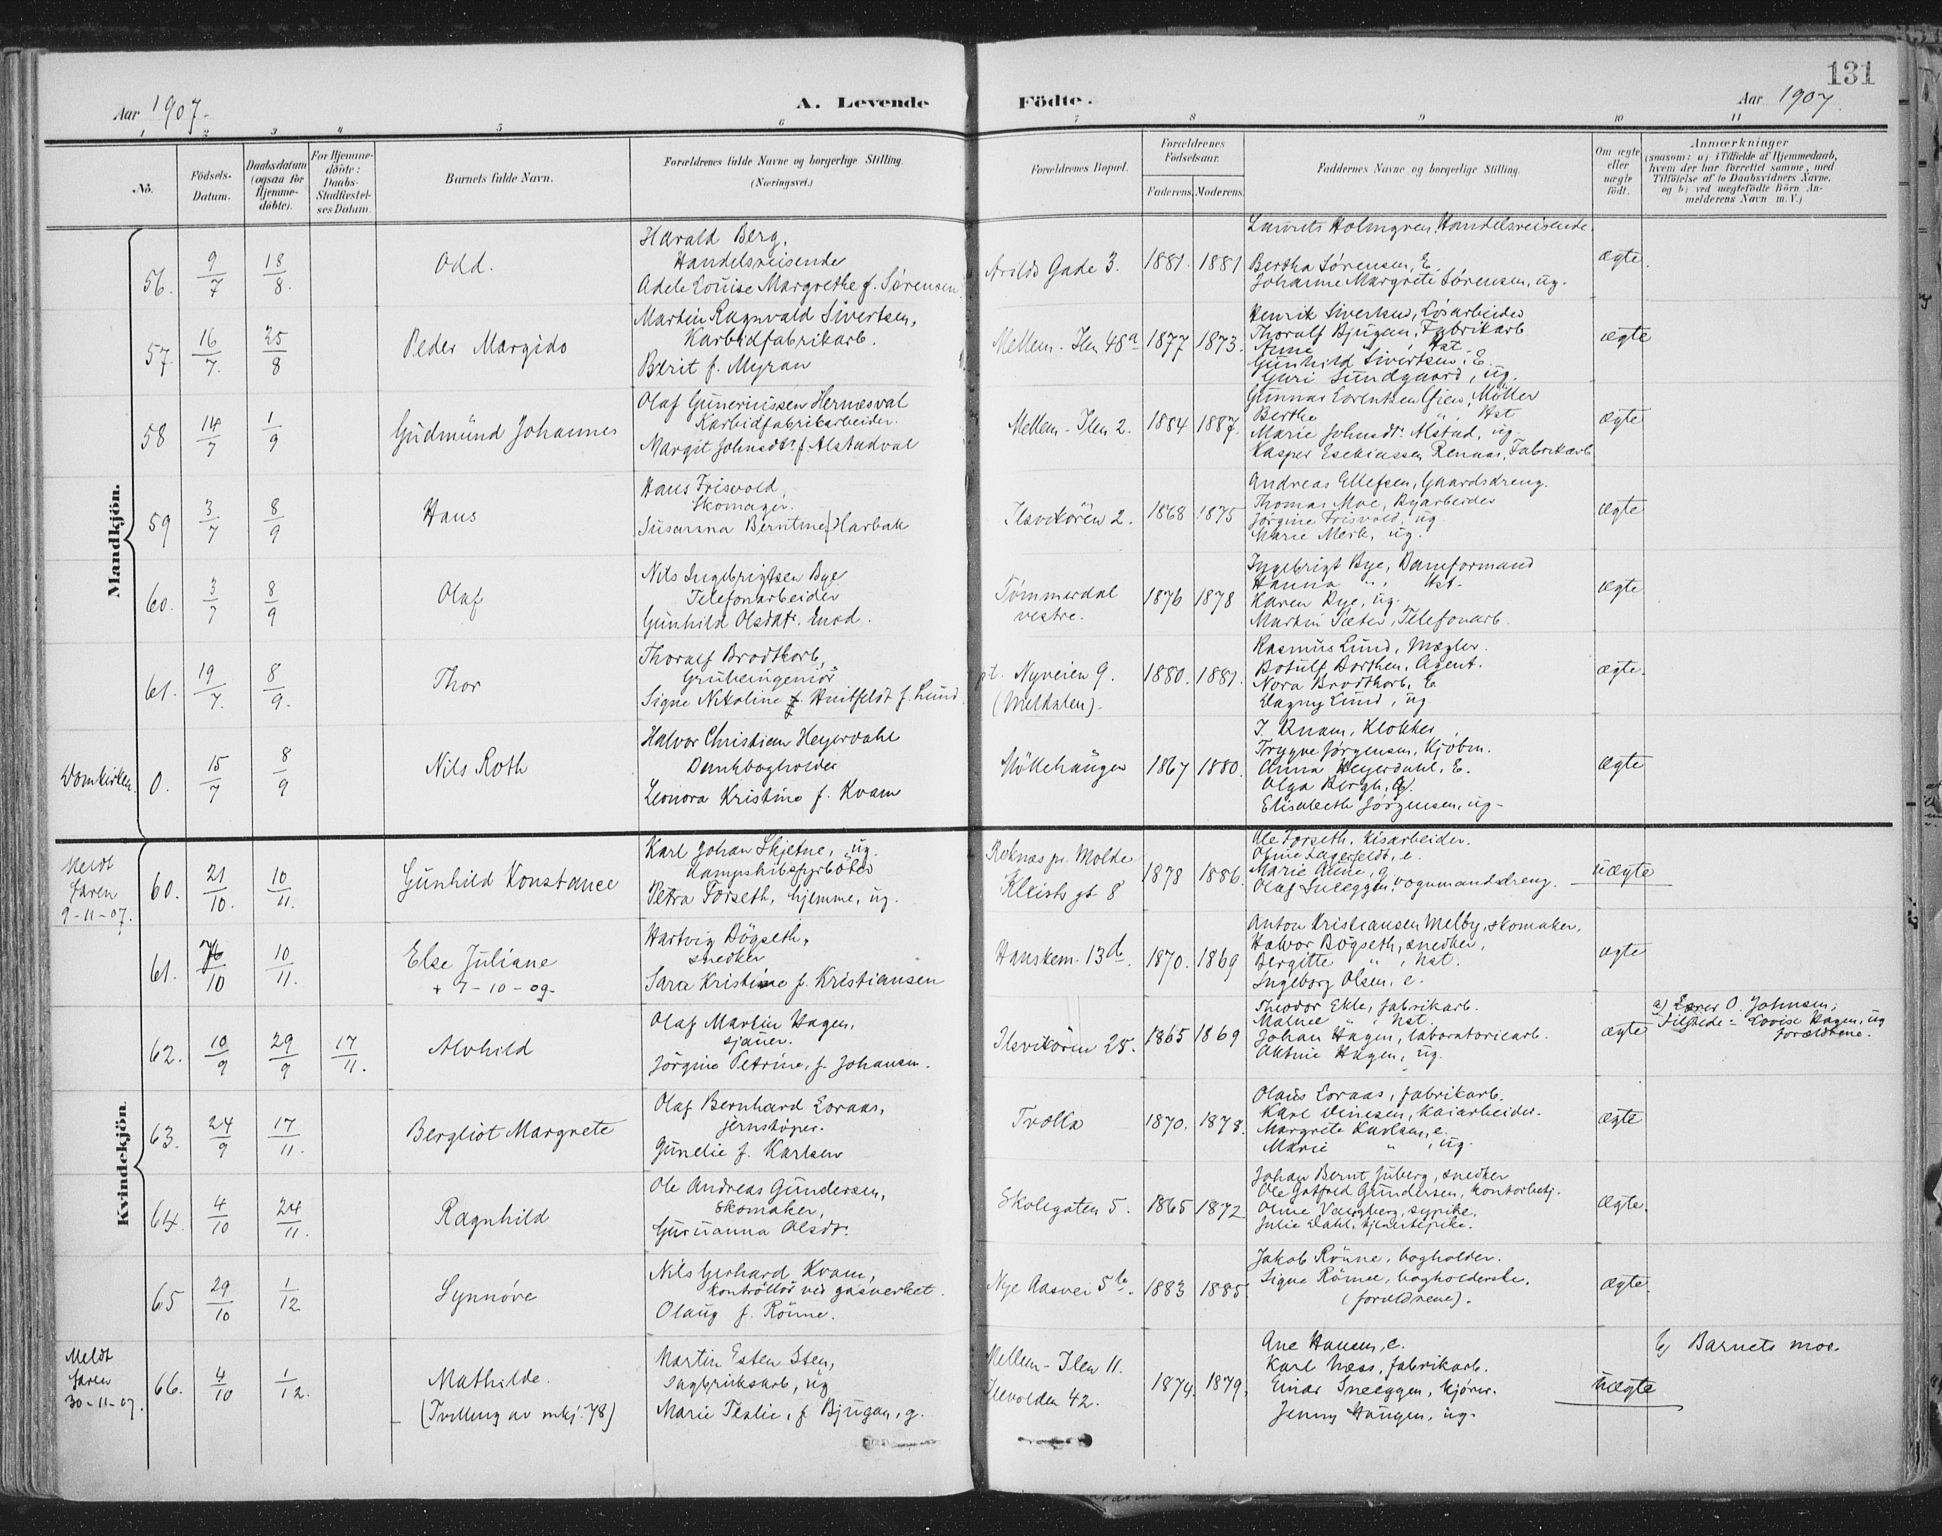 131
Aar 1907.
A. Levende
Födte.
Aar 1907.
1 2 3 4 5 6 7 8 9 10 11
No.
Födsels-Datum.
Daabsdatum (ogsaa for Hjemme-döbte).
For Hjemme-döbte: Daabs-Stadfæstel-ses Datum.
Barnets fulde Navn.
Forældrenes fulde Navne og borgerlige Stilling.
(Næringsvei.)
Forældrenes Bopæl.
Forældrenes Födselsaar.
Faderens.
Moderens.
Faddernes Navne og borgerlige Stilling.
Om ægte eller uægte födt.
Anmærkninger
(saasom: a) i Tilfælde af Hjemmedaab,
hvem der har forrettet samme, med
Tilföielse af to Daabsvidners Navne,
og b) ved uægtefödte Börn An-
melderens Navn m. V.)
Mandkjön.
56. 9/7 18/8. Odd.
Harald Berg,
Handelsreisende
Adele Louise Margrethe f. Sørensen
Arilds Gade 3. 1881. 1881
Laurits Holmgren, Handelsreisende.
Bertha Sørensen, E.
Johanne Margrete Sørensen, ug.
ægte.
57. 16/7. 25/8 Peder Margido
Martin Ragnvald Sivertsen,
Karbidfabrikarb.
Berit f. Myran
Mellem-Ilen 48a 1877 1873.
Henrik Sivertsen, Løsarbeider
Thoralf Bjugan, Fabrikarb
Anne " Hst.
Gunhild Sivertsen, E.
Guri Sundgaard, ug.
ægte
58 14/7 1/9 Gudmund Johannes
Olaf Guneriussen Hernæsval
Karbidfabrikarbeider.
Margit Johnsdtr. f. Alstadval
Mellem-Ilen 2. 1884 1887.
Gunnar Lorentsen Gien, Møller
Berthe " Hst
Marie Johnsdt. Alstad, ug.
Kasper Esekiassen Renaas, Fabrikarb
ægte
59 3/7 8/9 Hans
Hans Frisvold,
Skomager.
Susanna Berntine f. Harbak
Ilsvikören 2. 1868 1875
Andreas Ellefsen, Gaardsdreng.
Thomas Moe, Byarbeider
Jørgine Frisvold, ug
Marie Merk, ug.
ægte
60. 3/7 8/9 Olaf
Nils Ingebrigtsen Bye
Telefonarbeider
Gunhild Olsdtr. Mod.
Tømmerdal
vestre.
1876 1878
Ingebrigt Bye, Baneformand
Hanna " Hst.
Karen Bye, ug.
Martin Sæter, Telefonarb.
ægte
61. 19/7. 8/9. Thor
Thoralf Brodtkorb,
Grubeingeniør
Signe Nikoline Huitfeldt f. Lund
pt. Nyveien 9.
(Meldalen).
1880. 1881.
Rasmus Lund, Mægler.
Botulf Borthen, Agent.
Nora Brodtkorb, E
Dagny Lund, ug
ægte.
Domkirken. 0. 15/7 8/9 Nils Roth
Halvor Christian Heyerdahl
Bankbogholder
Leonora Kristine f. Kvam
Möllehaugen 1867 1880.
I. Kvam, Klokker
Trygve Jørgensen, Kjøbm.
Anna Heyerdahl, E.
Olga Bergh, E.
Elisabeth Jørgensen, ug.
Ægte
Kvindekjön.
Meldt
faren
9-11-07.
60. 21/10. 10/11. Gunhild Konstance
Karl Johan Skjetne, ug.
dampskibsfyrböter
Petra Forseth, hjemme, ug.
Reknæs pr. Molde
Kleists gt 8
1878 1886.
Ole Forseth, Kisarbeider.
Oline Lagerfeldt, e.
Marie Aune, g
Olaf Sneeggen, vognmandsdreng.
uægte
61. 10 10/11. Else Juliane
+ 7-10-09.
Hartvig Bögseth,
snedker
Sara Kristine f. Kristiansen
Hanskem. 13b. 1870. 1869
Anton Kristiansen Melby, skomaker,
Halvor Bögseth, snedker,
Bergitte " , Hst.
Ingeborg Olsen, e.
ægte
62. 10/9 29/9 17/11. Alvhild
Olaf Martin Hagen,
sjauer.
Jörgine Petrine, f. Johansen.
Ilsvikören 25. 1865 1869
Theodor Ekle, fabrikarb.
Malene " , Hst.
Johan Hagen, laboratoriearb.
Oktavie Hagen, ug.
ægte
a) O. Johnsen;
Tilstede = Lovise Hagen, ug
Forældrene.
63. 24/9 17/11. Bergliot Margrete
Olaf Bernhard Loraas,
jernstöper.
Gunelie f. Karlsen
Trolla 1870. 1878.
Olaus Loraas, fabrikarb.
Karl Dinesen, kaiarbeider.
Margrete Karlsen, e.
Marie " , ug.
ægte
64. 4/10 24/11. Ragnhild
Ole Andreas Gundersen,
Skomaker,
Guruanna Olsdt.
Skolegaten 5. 1865 1872
Johan Bernt Juberg, snedker
Ole Gotfred Gundersen, kontorbetj.
Oline Vangberg, sypike,
Julie Dahl, tjenestepike.
Ægte.
65 29/10 1/12 Synnöve
Nils Gerhard Kvam,
kontrollör ved gasverket.
Olaug f. Rönne.
Nye Aasvei 5b. 1883 1885
Jakob Rönne, bogholder.
Signe Rönne, bogholderske.
(forældrene).
ægte.
Meldt
faren
30-11-07.
66. 4/10 1/12. Mathilde.
(Tvilling av mkj. 78)
Martin Esten Sten,
sagbruksarb, ug
Marie Teslie, f. Bjugan, g.
Mellem-Ilen 11.
Ilevolden 42.
1874. 1879.
Ane Hansen, e.
Karl Næss, fabrikarb.
Einar Sneeggen, kjörer.
Jenny Haugen, ug.
uægte
b) Barnets mor